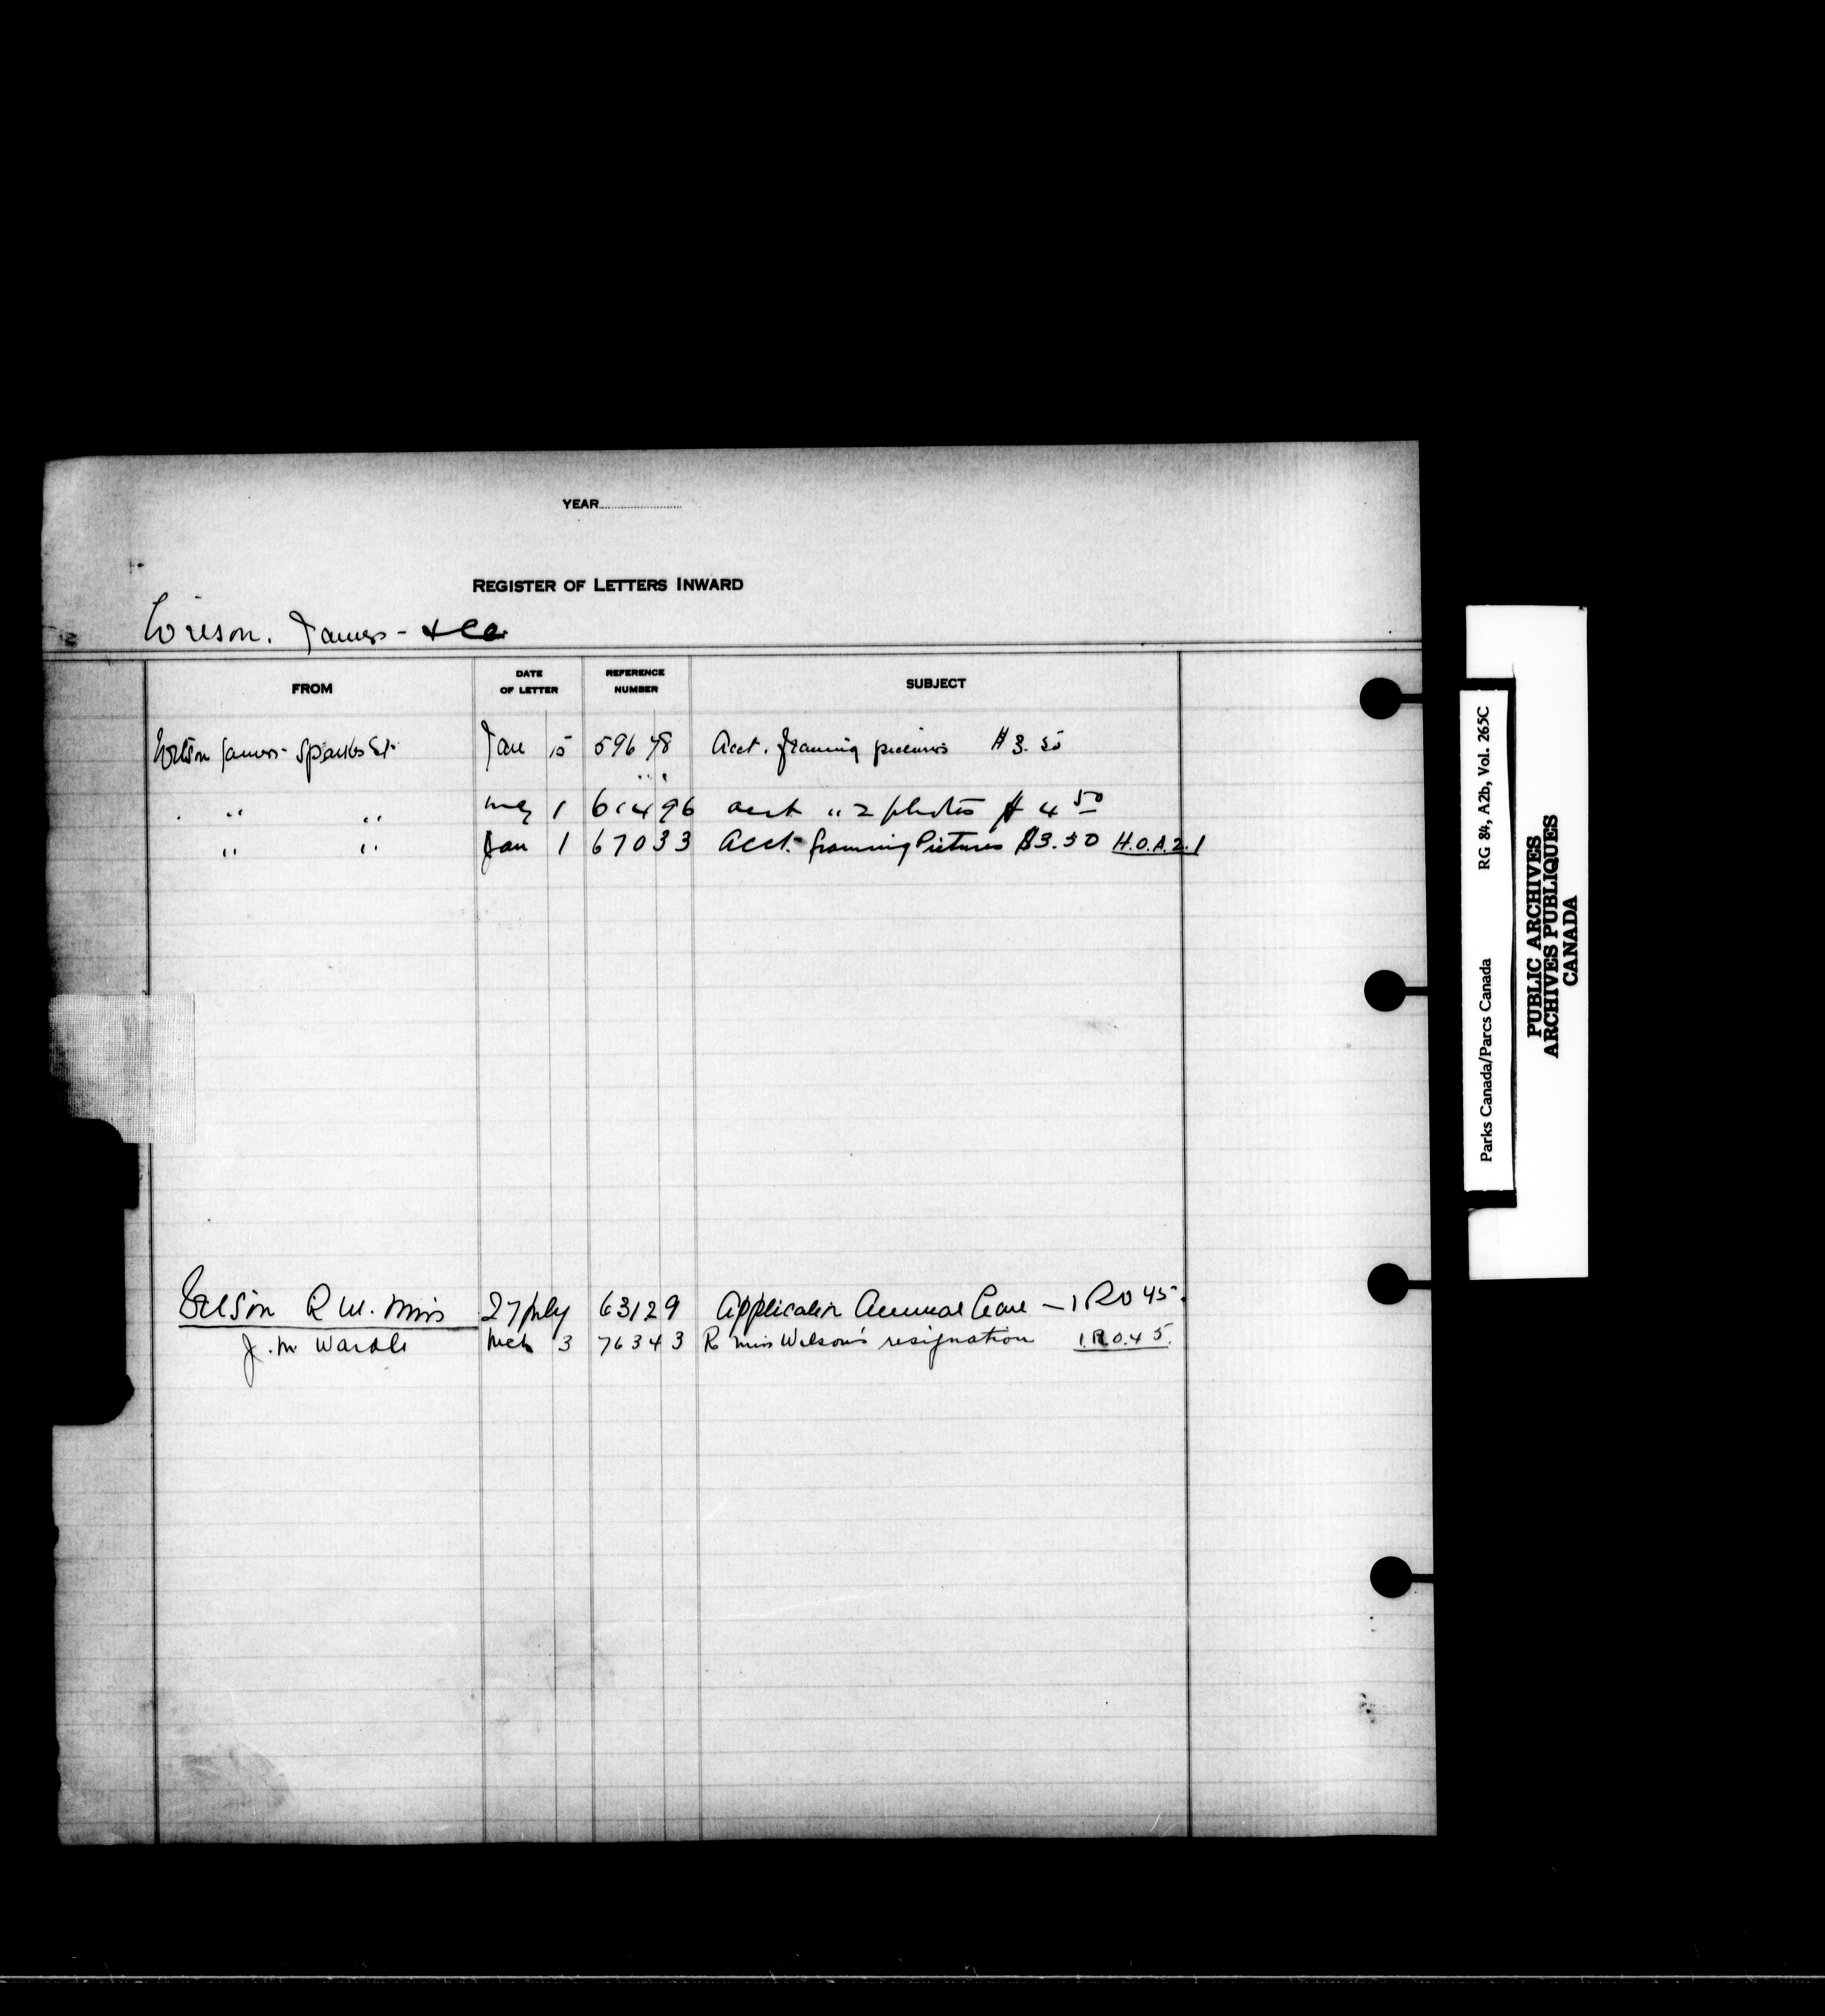 YEAR
REGISTER OF LETTERS INWARD
Wilson. James - & Co.
FROM
DATE
OF LETTER
REFERENCE
NUMBER
SUBJECT
Wilson James - Sparks St. Jan 15 59648 Acct. framing pictures $3.50
" " May 1 61496 acct " 2 photos $4 50
" " Jan 1 67033 Acct. framing Pictures $3.50 H.O.A.2.1
Wilson R W. Miss 27 July 63129 Application Annual Leave - 1 R O 45.
J. M Wardle Mch 3 76343 Re Miss Wilson's resignation 1.R.O.45.
Parks Canada/Parcs Canada RG 84, A2b, Vol. 265C
PUBLIC ARCHIVES
ARCHIVES PUBLIQUES
CANADA